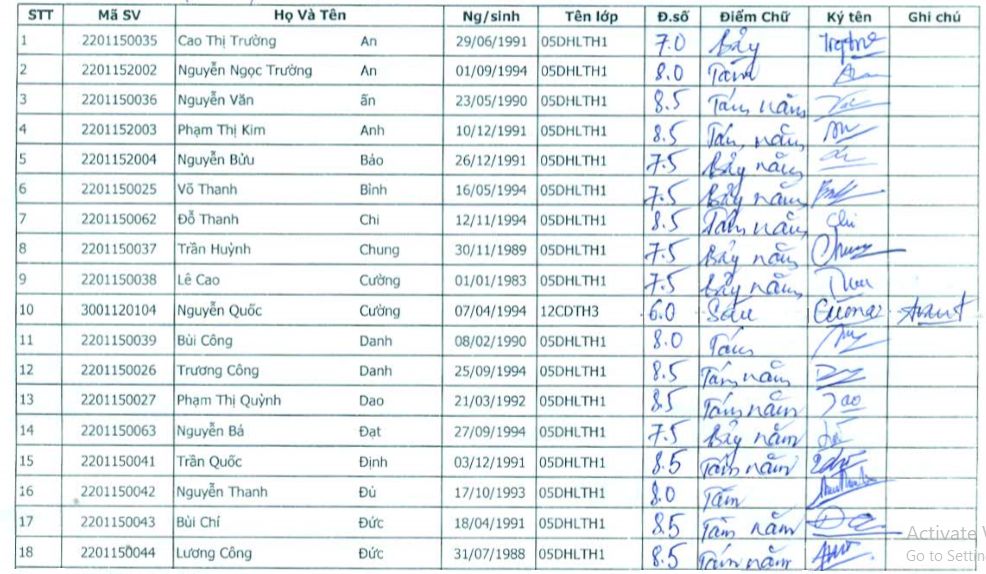 STT Mã SV Họ Và Tên Ng/sinh Tên lớp Đ.số Điểm Chữ Ký tên Ghi chú
1 2201150035 Cao Thị Trường An 29/06/1991 05DHLTH1 7.0 Bảy
2 2201152002 Nguyễn Ngọc Trường An 01/09/1994 05DHLTH1 8.0 Tám
3 2201150036 Nguyễn Văn ấn 23/05/1990 05DHLTH1 8.5 Tám năm
4 2201152003 Phạm Thị Kim Anh 10/12/1991 05DHLTH1 8.5 Tám năm
5 2201152004 Nguyễn Bửu Bảo 26/12/1991 05DHLTH1 7.5 Bảy năm
6 2201150025 Võ Thanh Bình 16/05/1994 05DHLTH1 7.5 Bảy năm
7 2201150062 Đỗ Thanh Chi 12/11/1994 05DHLTH1 8.5 Tám năm Chi
8 2201150037 Trần Huỳnh Chung 30/11/1989 05DHLTH1 7.5 Bảy năm Chung
9 2201150038 Lê Cao Cường 01/01/1983 05DHLTH1 7.5 Bảy năm
10 3001120104 Nguyễn Quốc Cường 07/04/1994 12CDTH3 6.0 Sáu Cường
11 2201150039 Bùi Công Danh 08/02/1990 05DHLTH1 8.0 Tám
12 2201150026 Trương Công Danh 25/09/1994 05DHLTH1 8.5 Tám năm
13 2201150027 Phạm Thị Quỳnh Dao 21/03/1992 05DHLTH1 8.5 Tám năm Dao
14 2201150063 Nguyễn Bá Đạt 27/09/1994 05DHLTH1 7.5 Bảy năm
15 2201150041 Trần Quốc Định 03/12/1991 05DHLTH1 8.5 Tám năm
16 2201150042 Nguyễn Thanh Đủ 17/10/1993 05DHLTH1 8.0 Tám
17 2201150043 Bùi Chí Đức 18/04/1991 05DHLTH1 8.5 Tám năm
18 2201150044 Lương Công Đức 31/07/1988 05DHLTH1 8.5 Tám năm
Activate
Go to Settin